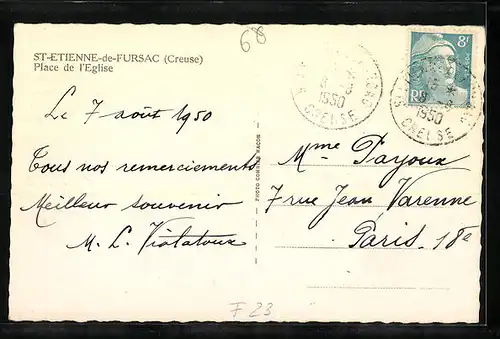 68
ST-ETIENNE-de-FURSAC (Creuse)
Place de l'Eglise
8F
RF
1950
CREUSE
1950
CREUSE
Le 7 août 1950
Tous nos remerciements
Meilleur souvenir
M. L. Violatoux
Mme Payoux
7 rue Jean Varenne
Paris. 18e
F 23